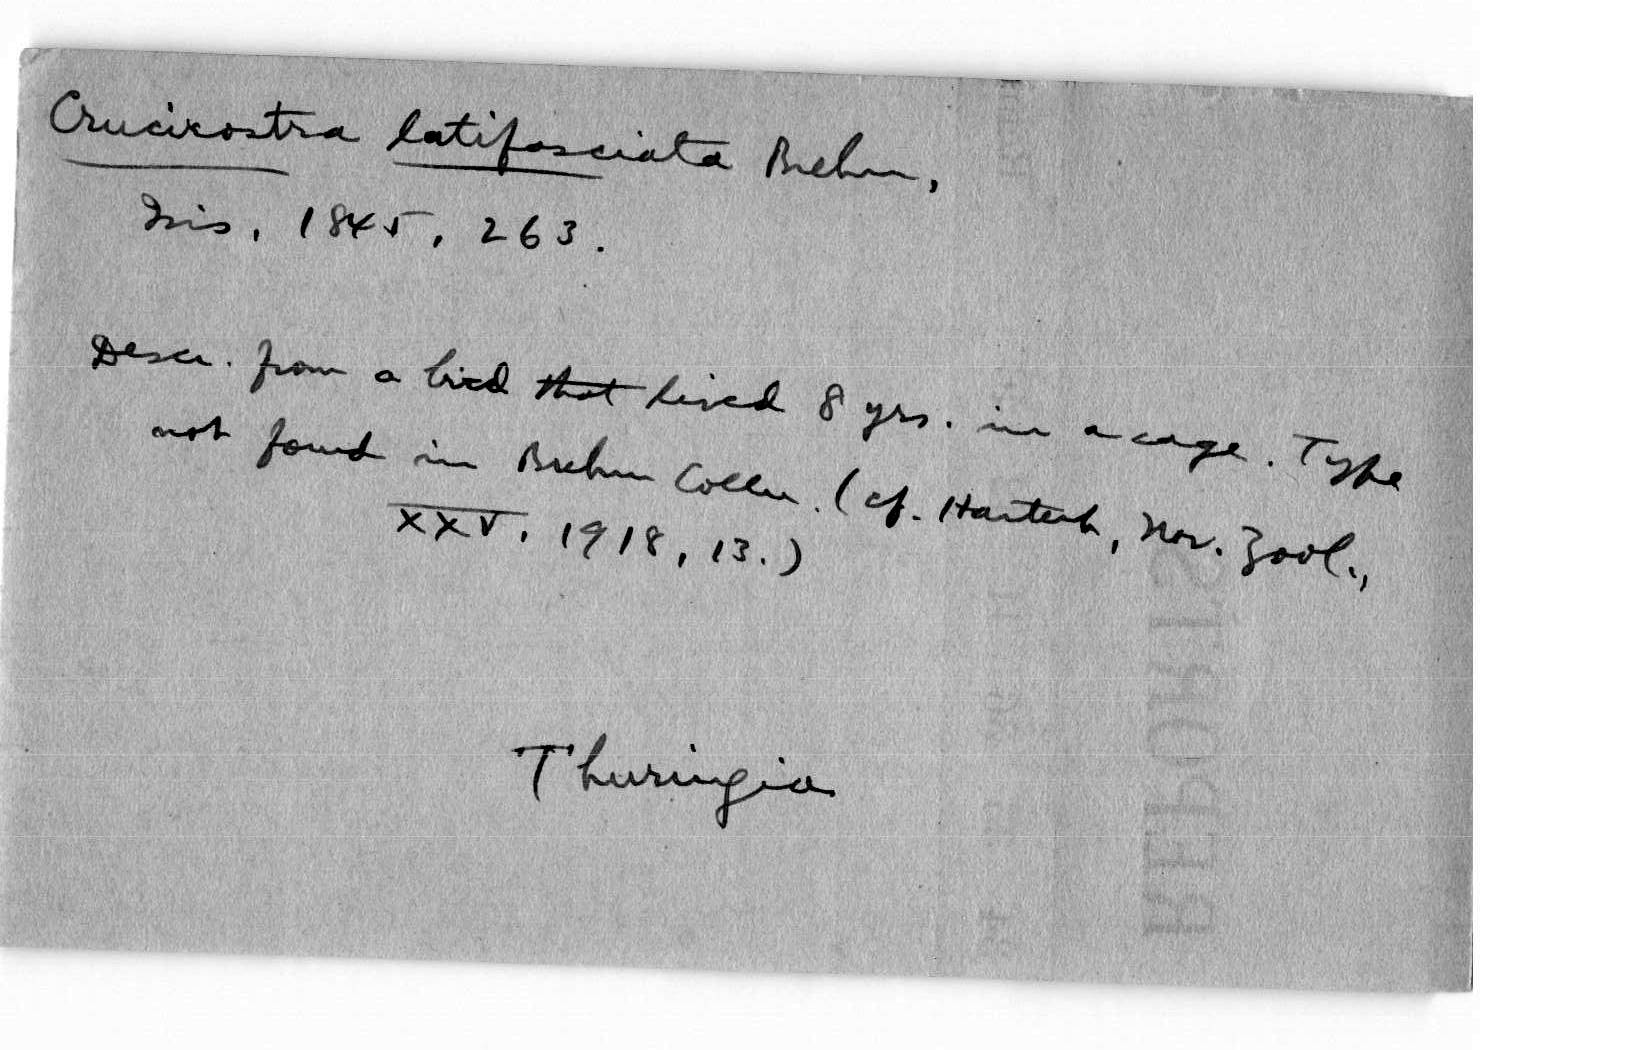 Crucirostra latifasciata Brehm,
Isis, 1845, 263.
Descr. from a bird that lived 8 yrs. in a cage. Type
not found in Brehm Colln. (cf. Hartert, Nov. Zool.,
XXV, 1918, 13.)
Thuringia
REPORTS